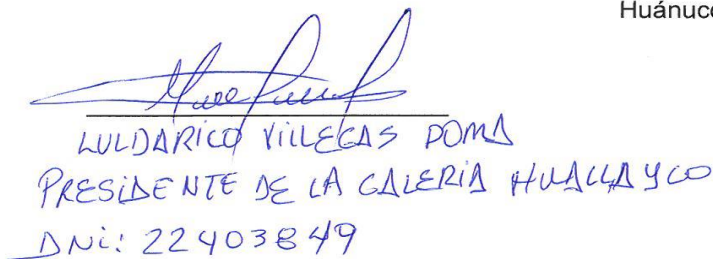 Huánuco
LULDARICO VILLEGAS POMA
PRESIDENTE DE LA GALERIA HUALLAYCO
DNi: 22403849